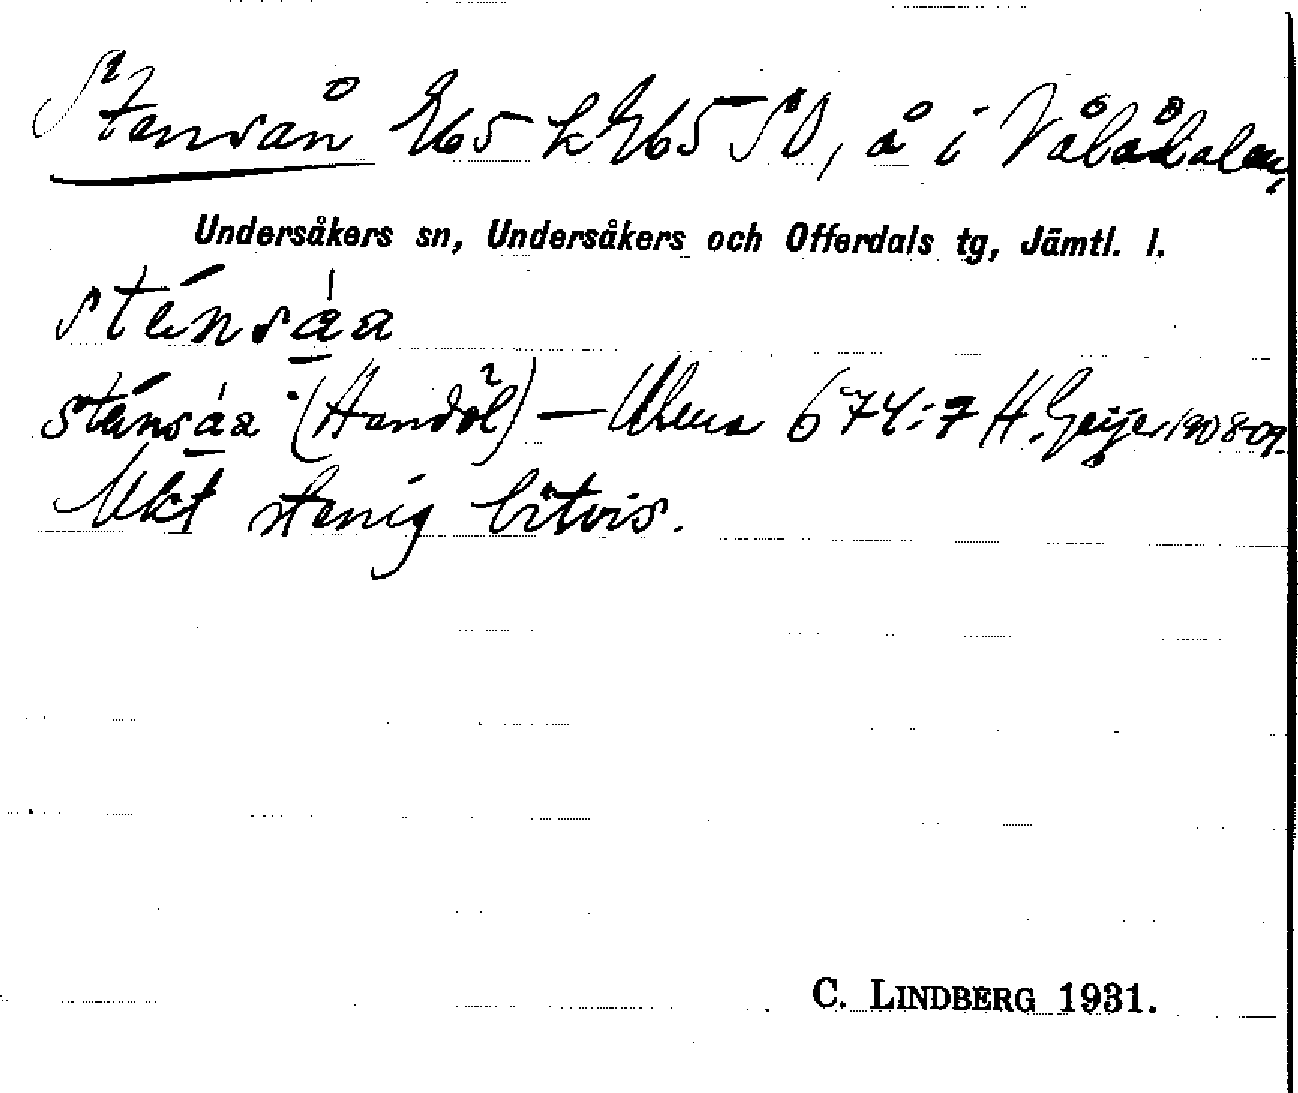 Stensån 265 k 265 SV, å i Vålådalen,
Undersåkers sn, Undersåkers och Offerdals tg, Jämtl. l.
sténsåa
sténsåa (Handöl) — 674:7 H. Geijer 1908-09.
Mkt stenig bitvis.
C. LINDBERG 1931.